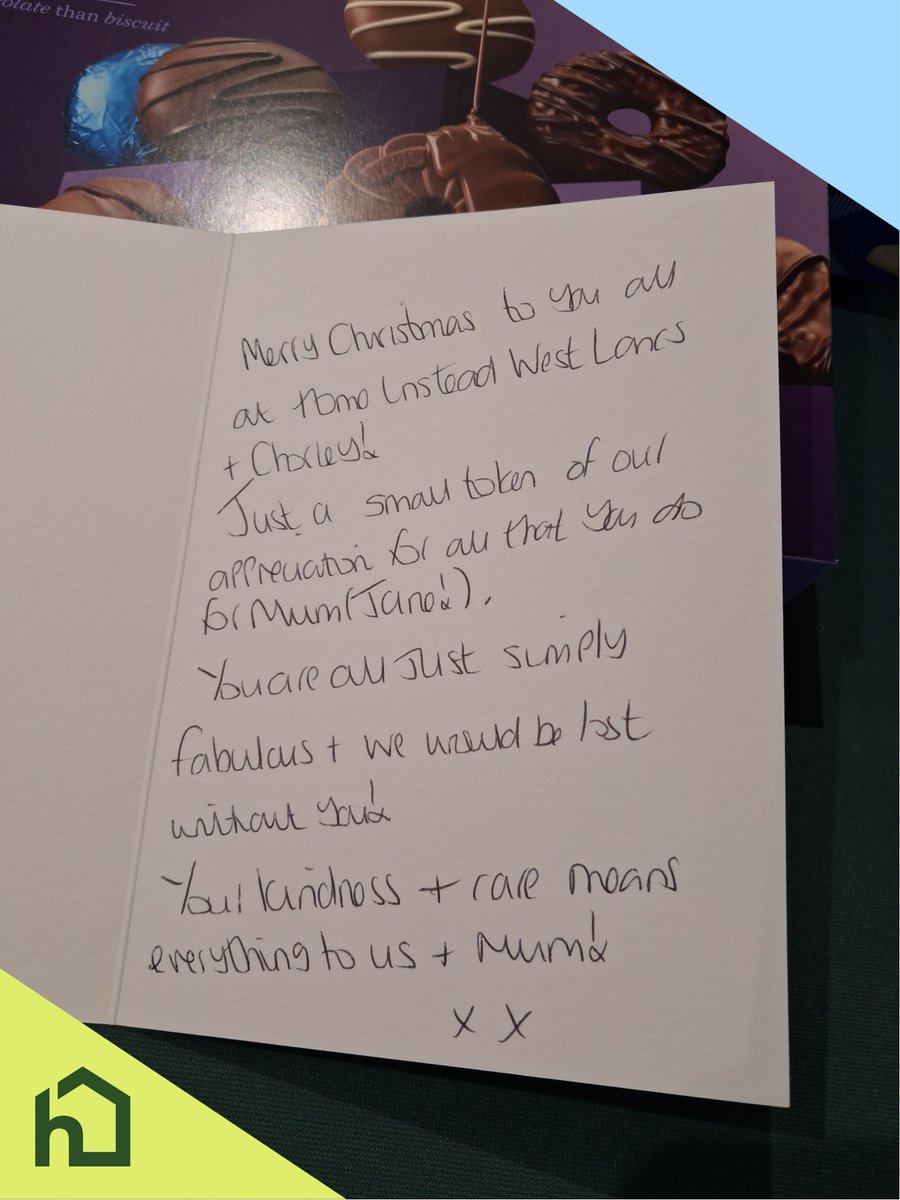 olate than biscuit
Merry Christmas to you all
at Home Instead West Lancs
+ Chorley!
Just a small token of our
appreciation for all that you do
for Mum (Jane!).
You are all just simply
fabulous + we would be lost
without you!
Your kindness + care means
everything to us + Mum!
x x
h